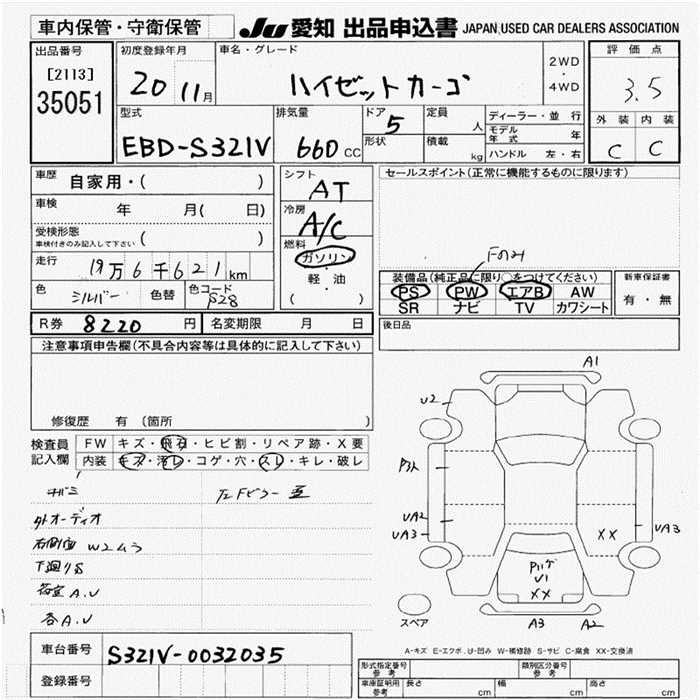 車内保管・守衛保管
JU 愛知 出品申込書 JAPAN USED CAR DEALERS ASSOCIATION
出品番号
[2113]
35051
初度登録年月
20 11月
車名・グレード
ハイゼットカーゴ
2WD
・
4WD
評価点
3.5
外装 内装
C C
型式
EBD-S321V
排気量
660 CC
ドア
5
形状
定員
人
積載
kg
ディーラー・並行
モデル年式 年
ハンドル 左・右
車歴 自家用・( )
車検 年 月( 日)
受検形態
車検付きのみ記入して下さい ( )
走行 19万6千621km
色 シルバー 色替 色コード S28
シフト
AT
冷房
A/C
燃料
ガソリン
・
軽油
( )
セールスポイント(正常に機能するものに限ります)
Fのみ
装備品(純正品に限り○をつけてください)
PS PW エアB AW
SR ナビ TV カワシート
新車保証書
有・無
R券 8220 円 名変期限 月 日
後日品
注意事項申告欄(不具合内容等は具体的に記入して下さい)
修復歴 有 (箇所 )
検査員記入欄
FW キズ・飛石・ヒビ割・リペア跡・X要
内装 キズ・汚レ・コゲ・穴・スレ・キレ・破レ
外オーディオ
W2ムラ
下廻りS
荷室A.U
各A.U
左Fピラー
A1
U2
UA2
UA3
XX
UA3
U1
XX
A3 A2
スペア
A-キズ E-エクボ U-凹み W-補修跡 S-サビ C-腐食 XX-交換済
車台番号 S321V-0032035
登録番号
型式指定番号
参考
類別区分番号
参考
車庫証明用
参考
長さ cm 幅 cm 高さ cm